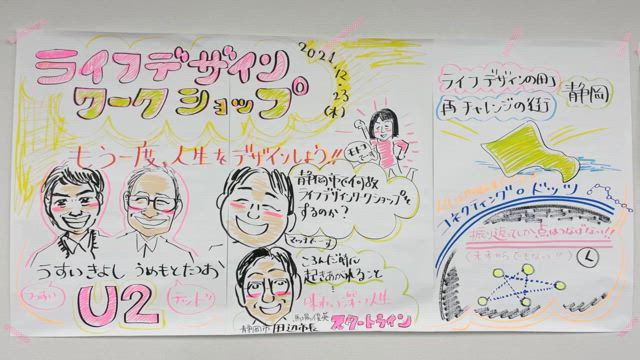 ライフデザイン
ワークショップ
2021
12.23
(木)
もう一度、人生をデザインしよう!!
うすいきよし
うめもとたつお
U2
静岡市で何故
ライフデザインワークショップを
するのか?
ころんだ後に
起きあがること
味わい深い人生
静岡市
田辺市長
スタートライン
ライフデザインの町
再チャレンジの街
静岡
コネクティング・ドッツ
振り返っていか点はつなげない!!